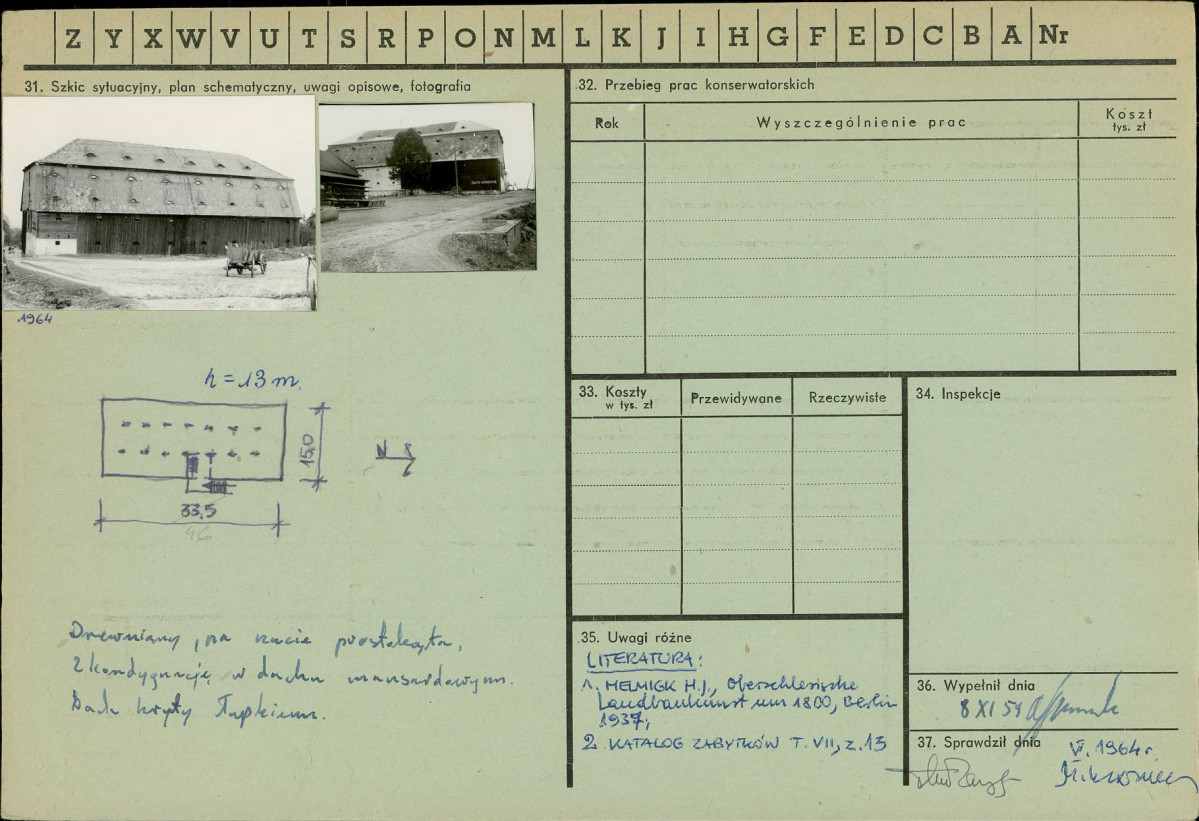 Z Y X W V U T S R P O N M L K J I H G F E D C B A Nr
31. Szkic sytuacyjny, plan schematyczny, uwagi opisowe, fotografia
1964
h = 13 m.
15,0
N
33,5
46
Drewniany, na rzucie prostokąta,
2 kondygnacje w dachu mansardowym.
Dach kryty łupkiem.
32. Przebieg prac konserwatorskich
Rok
Wyszczególnienie prac
Koszt
tys. zł
33. Koszty
w tys. zł
Przewidywane
Rzeczywiste
34. Inspekcje
35. Uwagi różne
LITERATURA:
1. HELMIGK H.J., Oberschlesische
Landbaukunst um 1800, Berlin
1937,
2. KATALOG ZABYTKÓW T. VII, z. 13
36. Wypełnił dnia
8 XI 59
37. Sprawdził dnia
VI. 1964 r.